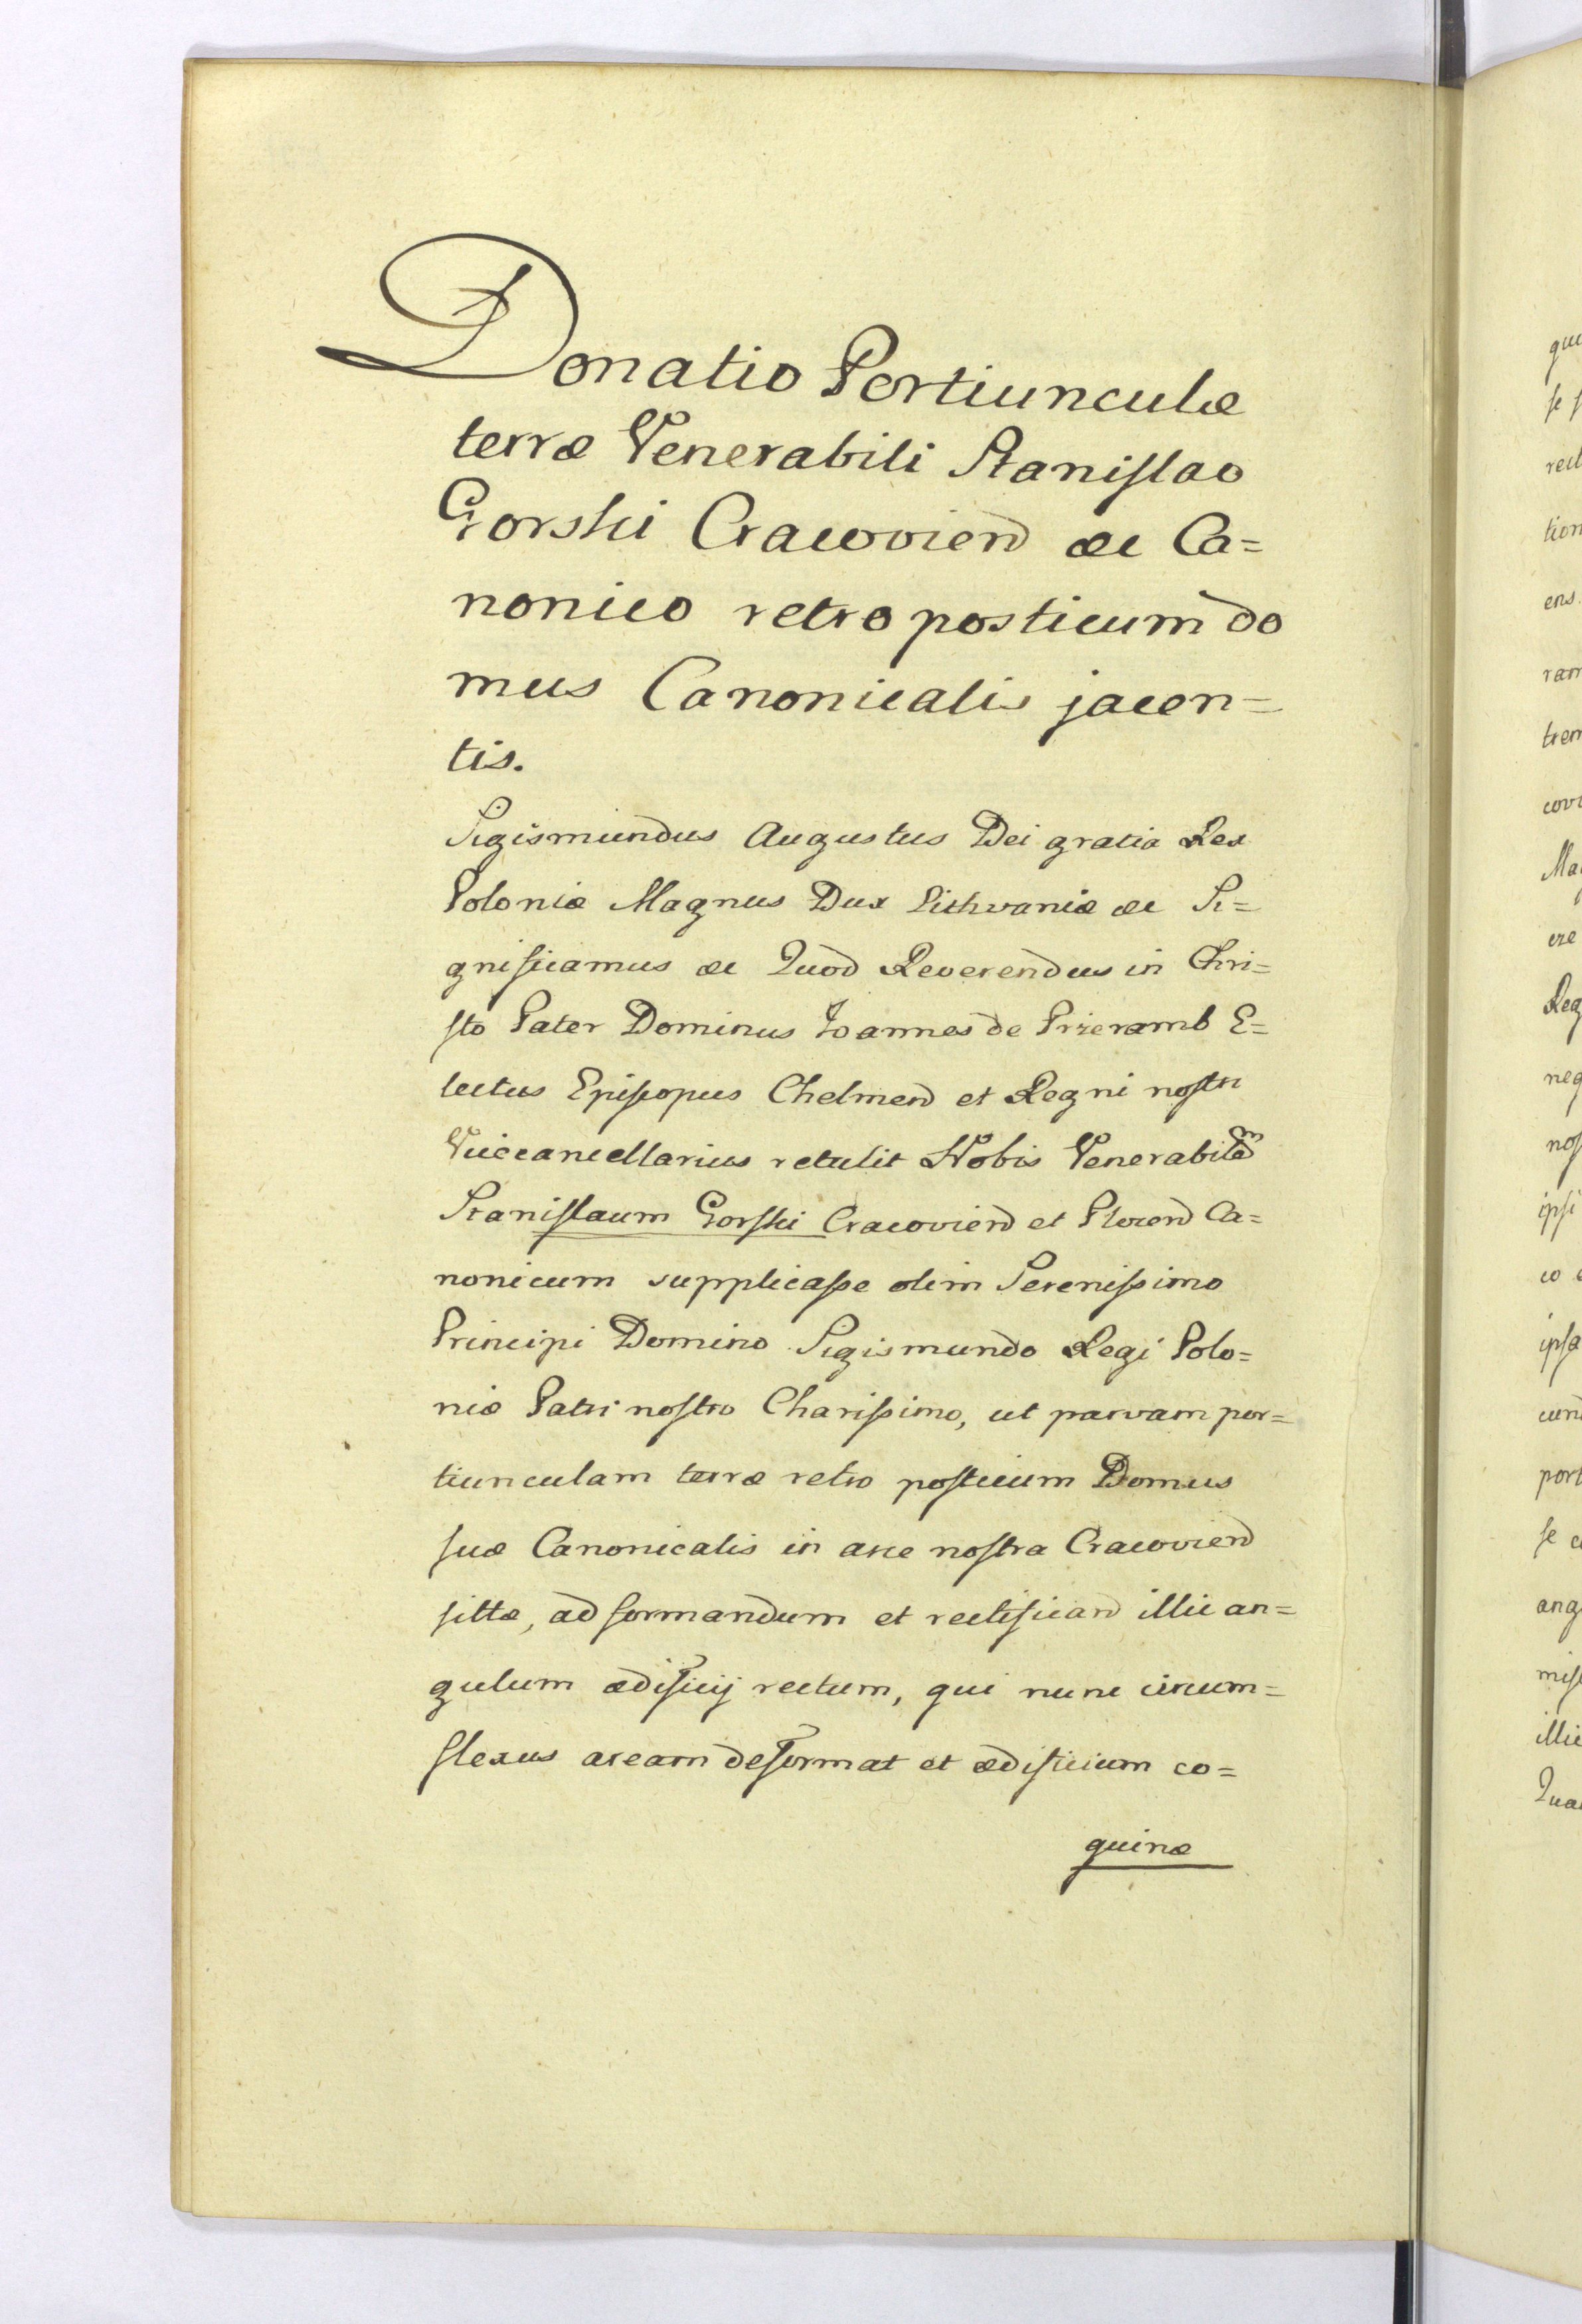 Donatio Portiunculæ
terræ Venerabili Stanislao
Gorski Cracovien &c Ca=
nonico retro posticum do
mus Canonicalis jacen=
tis.
Sigismundus Augustus Dei gratia Rex
Poloniæ Magnus Dux Lithvaniæ &c Si=
gnificamus &c Quod Reverendus in Chri=
sto Pater Dominus Joannes de Przeramb E=
lectus Episcopus Chelmen et Regni nostri
Vicecancellarius retulit Nobis Venerabilem
Stanislaum Gorski Cracovien et Plocen Ca=
nonicum supplicasse olim Serenissimo
Principi Domino Sigismundo Regi Polo=
niæ Patri nostro Charissimo, ut parvam por=
tiunculam terræ retro posticum Domus
suæ Canonicalis in arce nostra Cracovien
sittæ, ad formandum et rectifican illic an=
gulum ædificij rectum, qui nunc circum=
flexus aream deformat et ædificium co=
quinæ